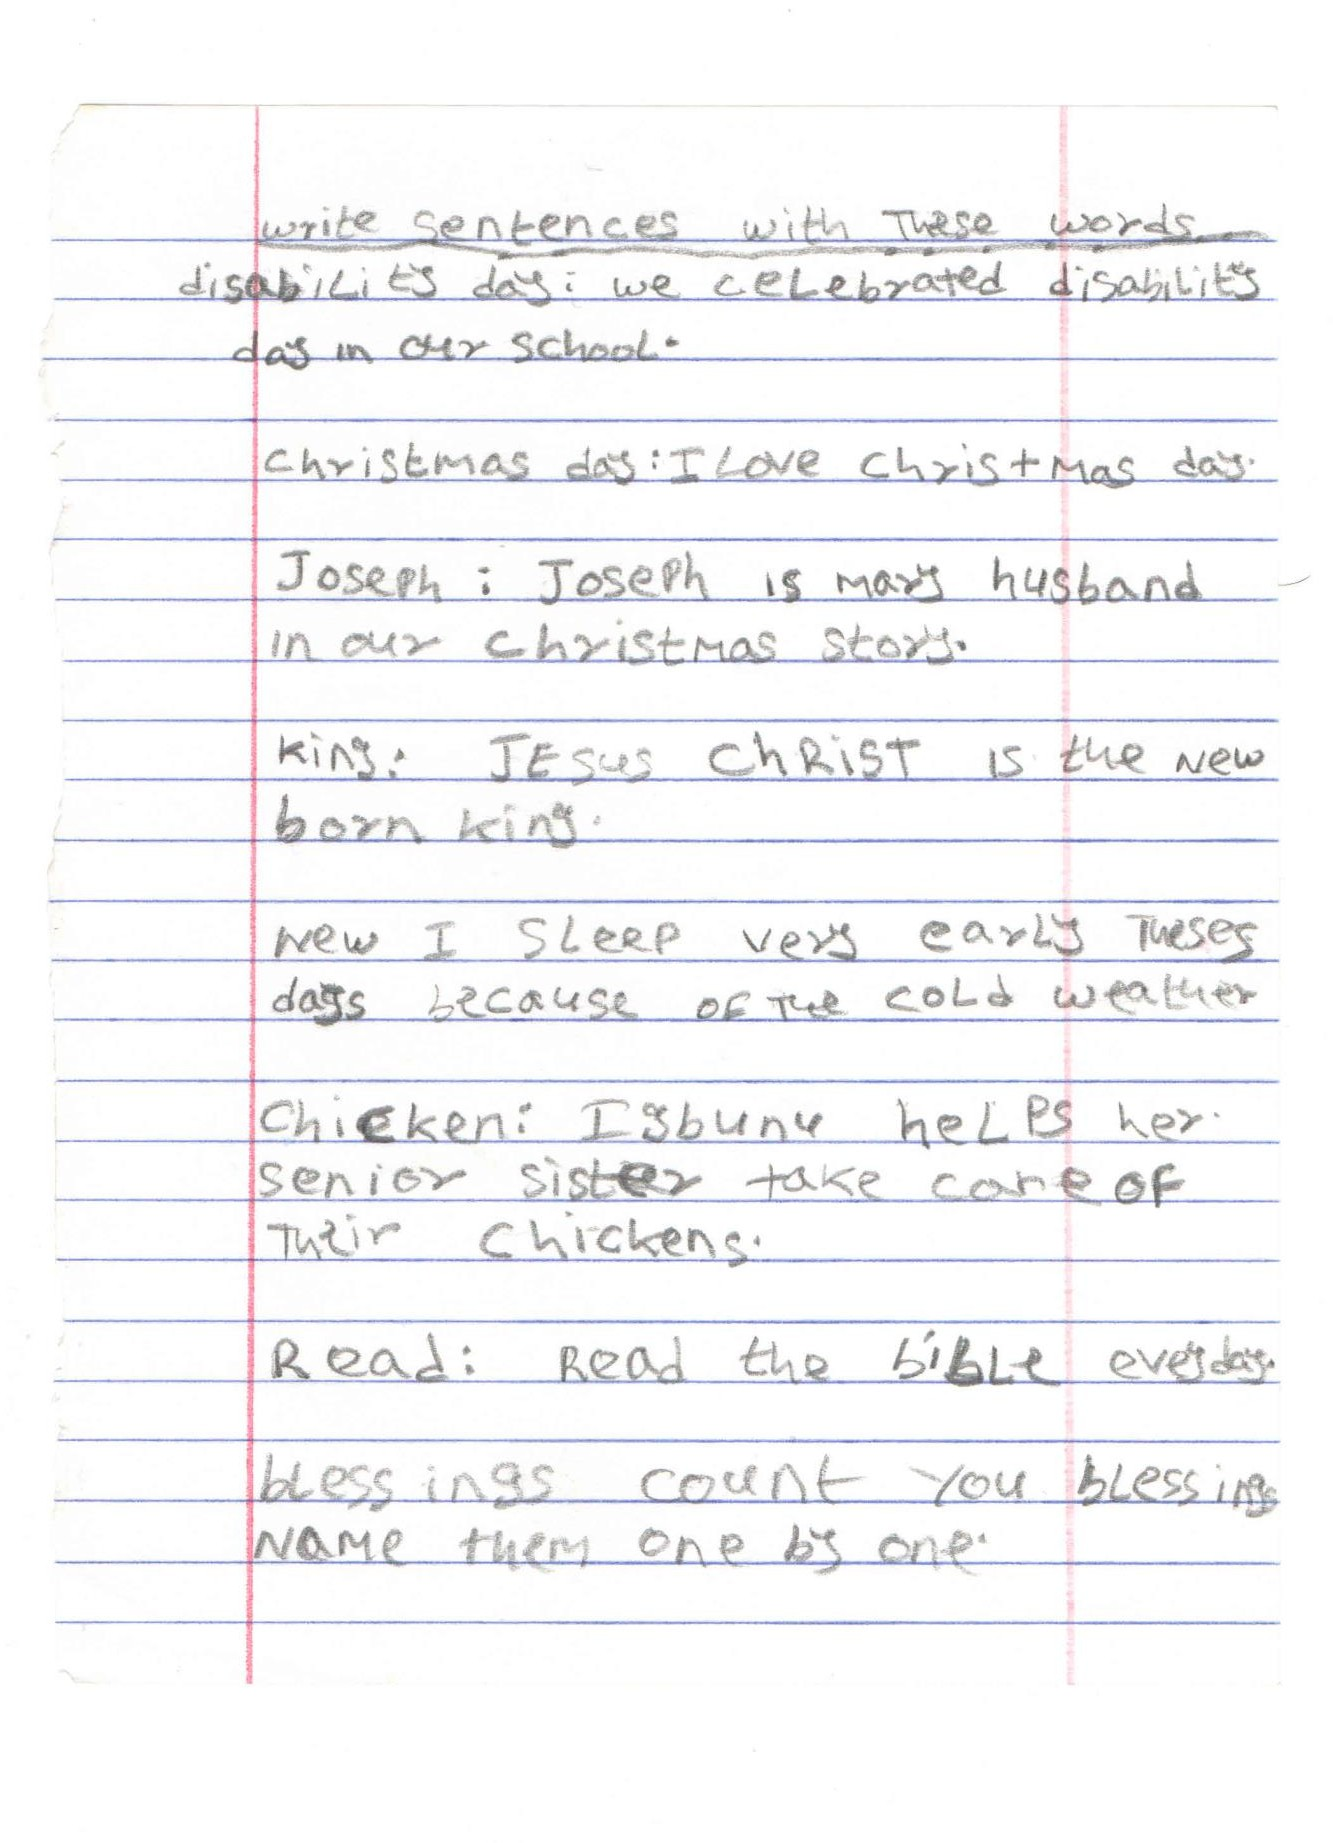 write sentences with These words
disability day: we celebrated disability
day in our school.
Christmas day: I Love Christmas day.
Joseph: Joseph is mary husband
in our Christmas story.
King: JESUS ChRiST is the New
born King.
New I SLeep very early Theses
days because of The cold weather
Chicken: Igbunu heLps her
senior sister take care of
Their Chickens.
Read: Read the bible eveyday.
blessings count you blessings
Name them one by one.